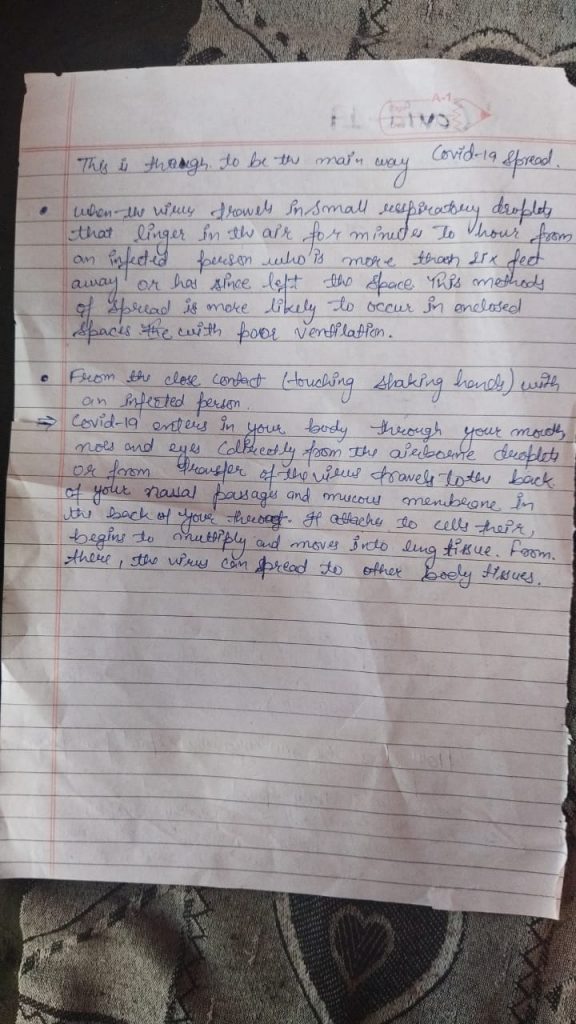 A-1
This is though to be the main way Covid-19 spread.
• when the virus travels in small respiratory droplets
that linger in the air for minutes to hour from
an infected person who is more than six feet
away or has since left the space This methods
of spread is more likely to occur in enclosed
spaces the with poor ventilation.
• From the close contact (touching shaking hands) with
an infected person.
⇒ Covid-19 enters in your body through your mouth,
nols and eyes (directly from the airbourne droplets
or from transfer of the virus travels to the back
of your nasal passages and mucous membrane in
the back of your throat. It attaches to cells their,
begins to multiply and moves into lung tissue. From
there, the virus can spread to other body tissues.